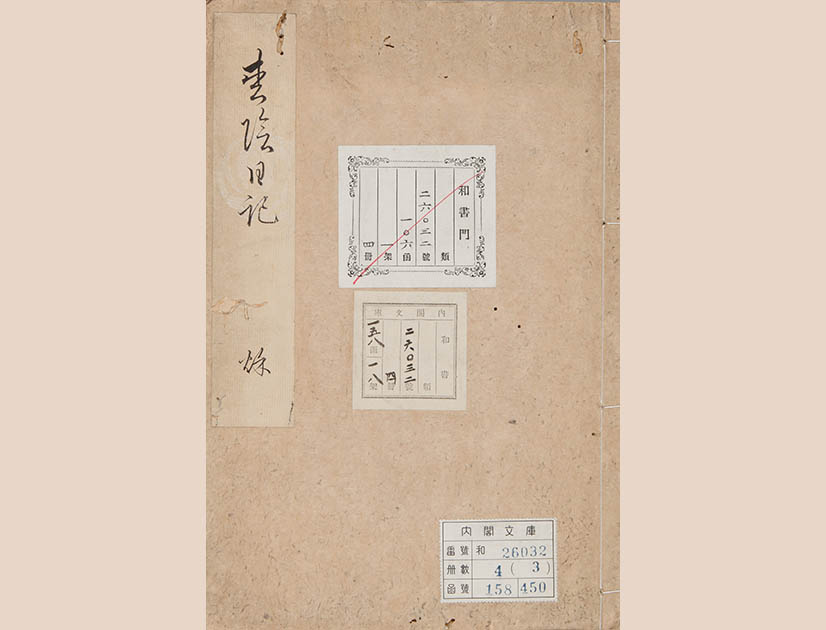 枩陰日記
秌
和書門
類
二六〇三二號
一〇六函
一架
四冊
內閣文庫
和書
類
二六〇三二號
四冊
一五八函
一八架
內閣文庫
番號 和 26032
冊數 4 ( 3 )
函號 158 450